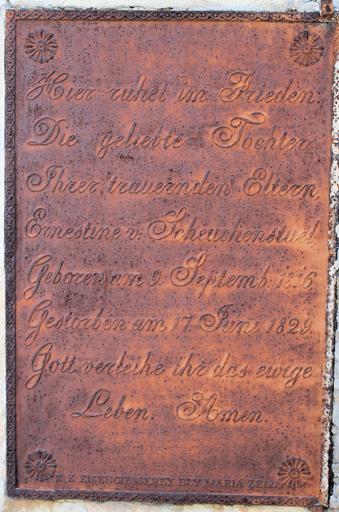 Hier ruhet im Frieden
Die geliebte Tochter
Ihrer trauernden Eltern,
Ernestine v. Scheuchenstuel
Geboren am 9. Septemb. 1816.
Gestorben am 17. Juni 1829.
Gott verleihe ihr das ewige
Leben. Amen.
K. K. EISENGIESSEREY BEY MARIA ZELL